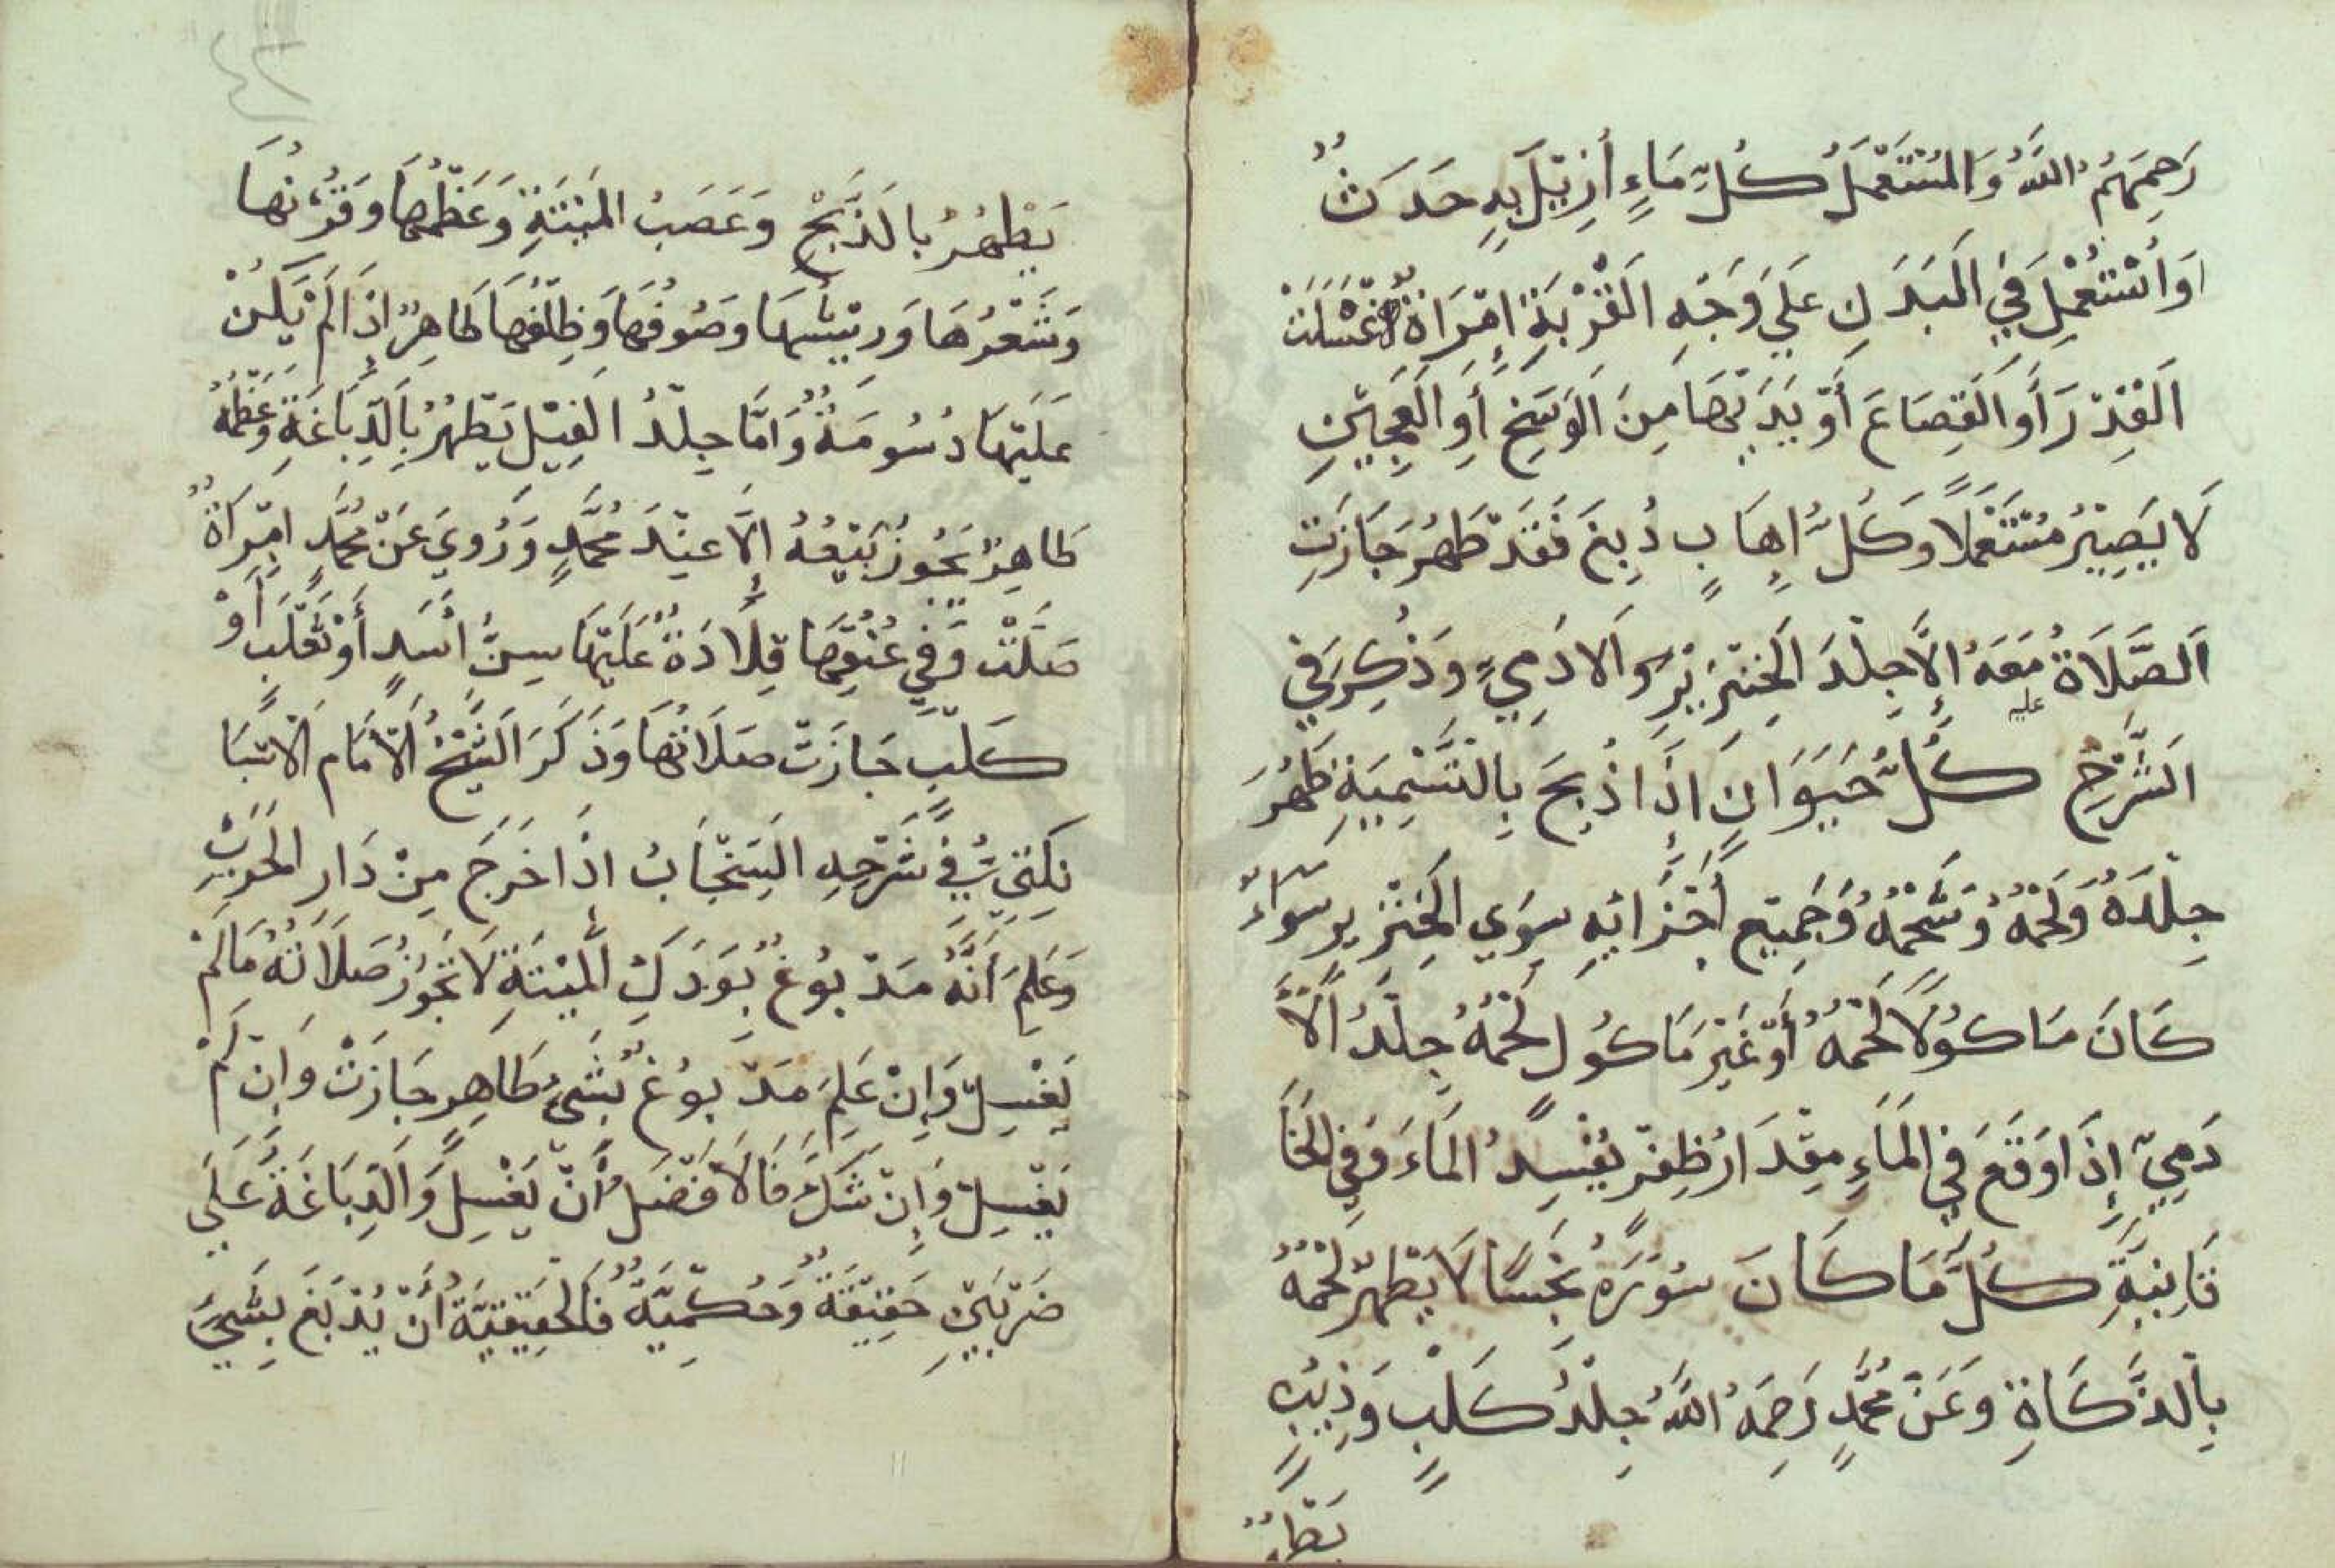 رَحِمَهُمُ اللهُ وَالمُسْتَعْمَلُ كُلُّ مَاءٍ أُزِيْلَ بِهِ حَدَثٌ
اَوِ اسْتُعْمِلَ فِي البَدَنِ عَلَي وَجْهِ القُرْبَةِ اِمْرَاَةٌ غَسَلَتْ
القِدْرَ أَوِ القِصَاعَ أَوْ يَدَيْهَا مِنَ الوَسَخِ أَوِ العَجِيْنِ
لَا يَصِيْرُ مُسْتَعْمَلًا وَكُلُّ اِهَابٍ دُبِغَ فَقَدْ طَهُرَ جَازَتِ
الصَّلَاةُ مَعَهُ إِلَّا جِلْدَ الخِنْزِيْرِ وَالادَمِيِّ وَذُكِرَ فِي
عليه
الشَّرْحِ كُلُّ حَيَوَانٍ اِذَا ذُبِحَ بِالتَّسْمِيَةِ طَهُرَ
جِلْدَهُ وَلَحْمُهُ وَشَحْمُهُ وَجَمِيْعِ أَجْزَائِهِ سِوَي الخِنْزِيرِ سَوَاءٌ
كَانَ مَاكُوْلًا لَحْمُهُ أَوْ غَيْرَ مَاكُولٍ لَحْمُهُ جِلْدُ الاٰ
دَمِيِّ إِذَا وَقَعَ فِي المَاءِ مِقْدَارُ ظِفْرٍ يُفْسِدُ المَاءَ وَفِي الخَا
قَانِيَّةِ كُلُّ مَا كَانَ سُوْرُهُ نَجَسًا لَا يَطْهُرُ لَحْمُهُ
بِالذَّكَاةِ وَعَنْ مُحَمَّدٍ رَحِمَهُ اللهُ جِلْدُ كَلْبٍ وَذِيبٍ
يَطْهُرُ بِالذَّبْحِ وَعَصَبُ المَيْتَةِ وَعَظْمُهَا وَقَرْنُهَا
وَشَعْرُهَا وَرِيْشُهَا وَصُوفُهَا وَظِلْفُهَا طَاهِرٌ اِذَا لَمْ يَكُنْ
عَلَيْهَا دُسُومَةٌ وَاَمَّا جِلْدُ الفِيْلِ يَطْهُرُ بِالدِّبَاغَةِ وَعَظْمُهُ
طَاهِرٌ يَجُوزُ بَيْعُهُ اِلَّا عِنْدَ مُحَمَّدٍ وَرُوِيَ عَنْ مُحَمَّدٍ اِمْرَاَةٌ
صَلَّتْ وَفِي عُنُقِهَا قِلَادَةٌ عَلَيْهَا سِنُّ اَسَدٍ أَوْ ثَعْلَبٍ أَوْ
كَلْبٍ جَازَتْ صَلَاتُهَا وَذَكَرَ الشَّيْخُ الاِمَام الاَسْبَا
نِكَتِيُّ فِي شَرْحِهِ السِّنْجَابُ اِذَا خَرَجَ مِنْ دَارِ الحَرْبِ
وَعَلِمَ اَنَّهُ مَدْبُوغٌ بِوَدَكِ المَيْتَةِ لَا تَجُوزُ صَلَاتُهُ مَا لَمْ
يَغْسِلْ وَاِنْ عَلِمَ مَدْبُوغٌ بِشَيْءٍ طَاهِرٍ جَازَتْ وَاِنْ لَمْ
يَغْسِلْ وَاِنْ شَكَّ فَالاَفْضَلُ أَنْ يَغْسِلَ وَالدِّبَاغَةُ عَلَي
ضَرْبَيْنِ حَقِيْقَةٌ وَحُكْمِيَّةٌ فَالحَقِيْقِيَّةُ أَنْ يُدْبَغَ بِشَيْءٍ